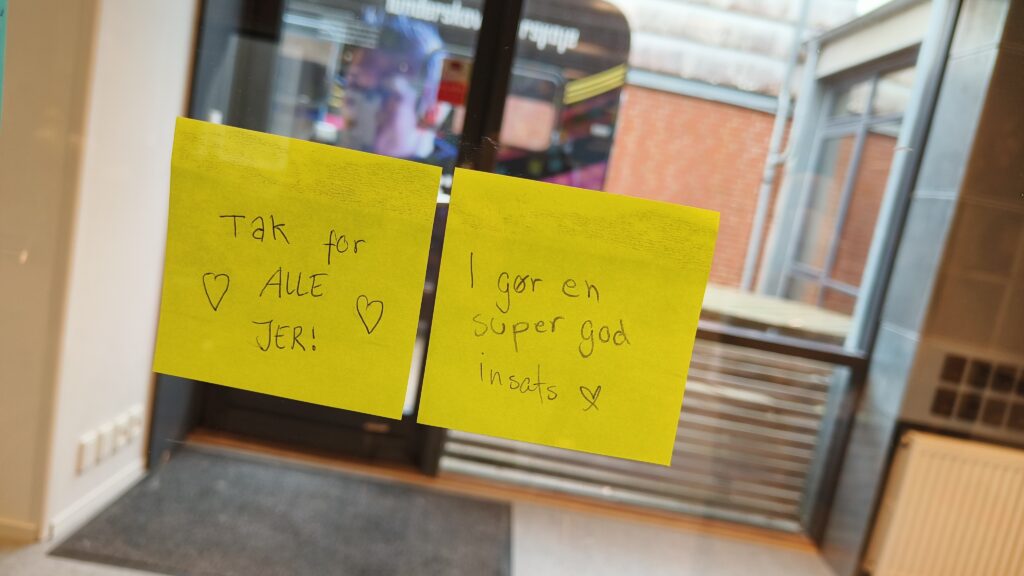 Tak for
♡ ALLE ♡
JER!
I gør en
super god
insats ♡